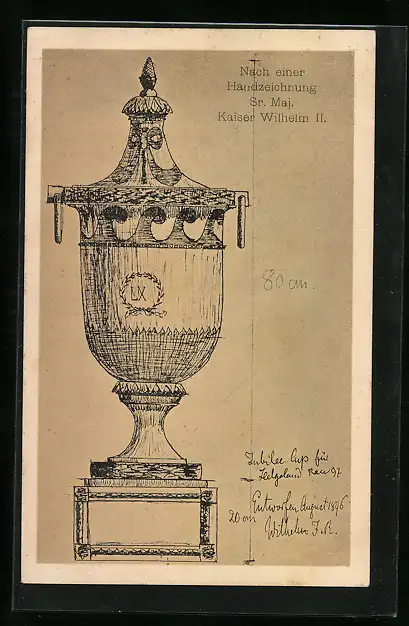 Nach einer
Handzeichnung
Sr. Maj.
Kaiser Wilhelm II.
80 cm.
LX
Jubilee Cup für
Helgoland Race 97.
Entworfen August 1896
20 cm
Wilhelm I.R.